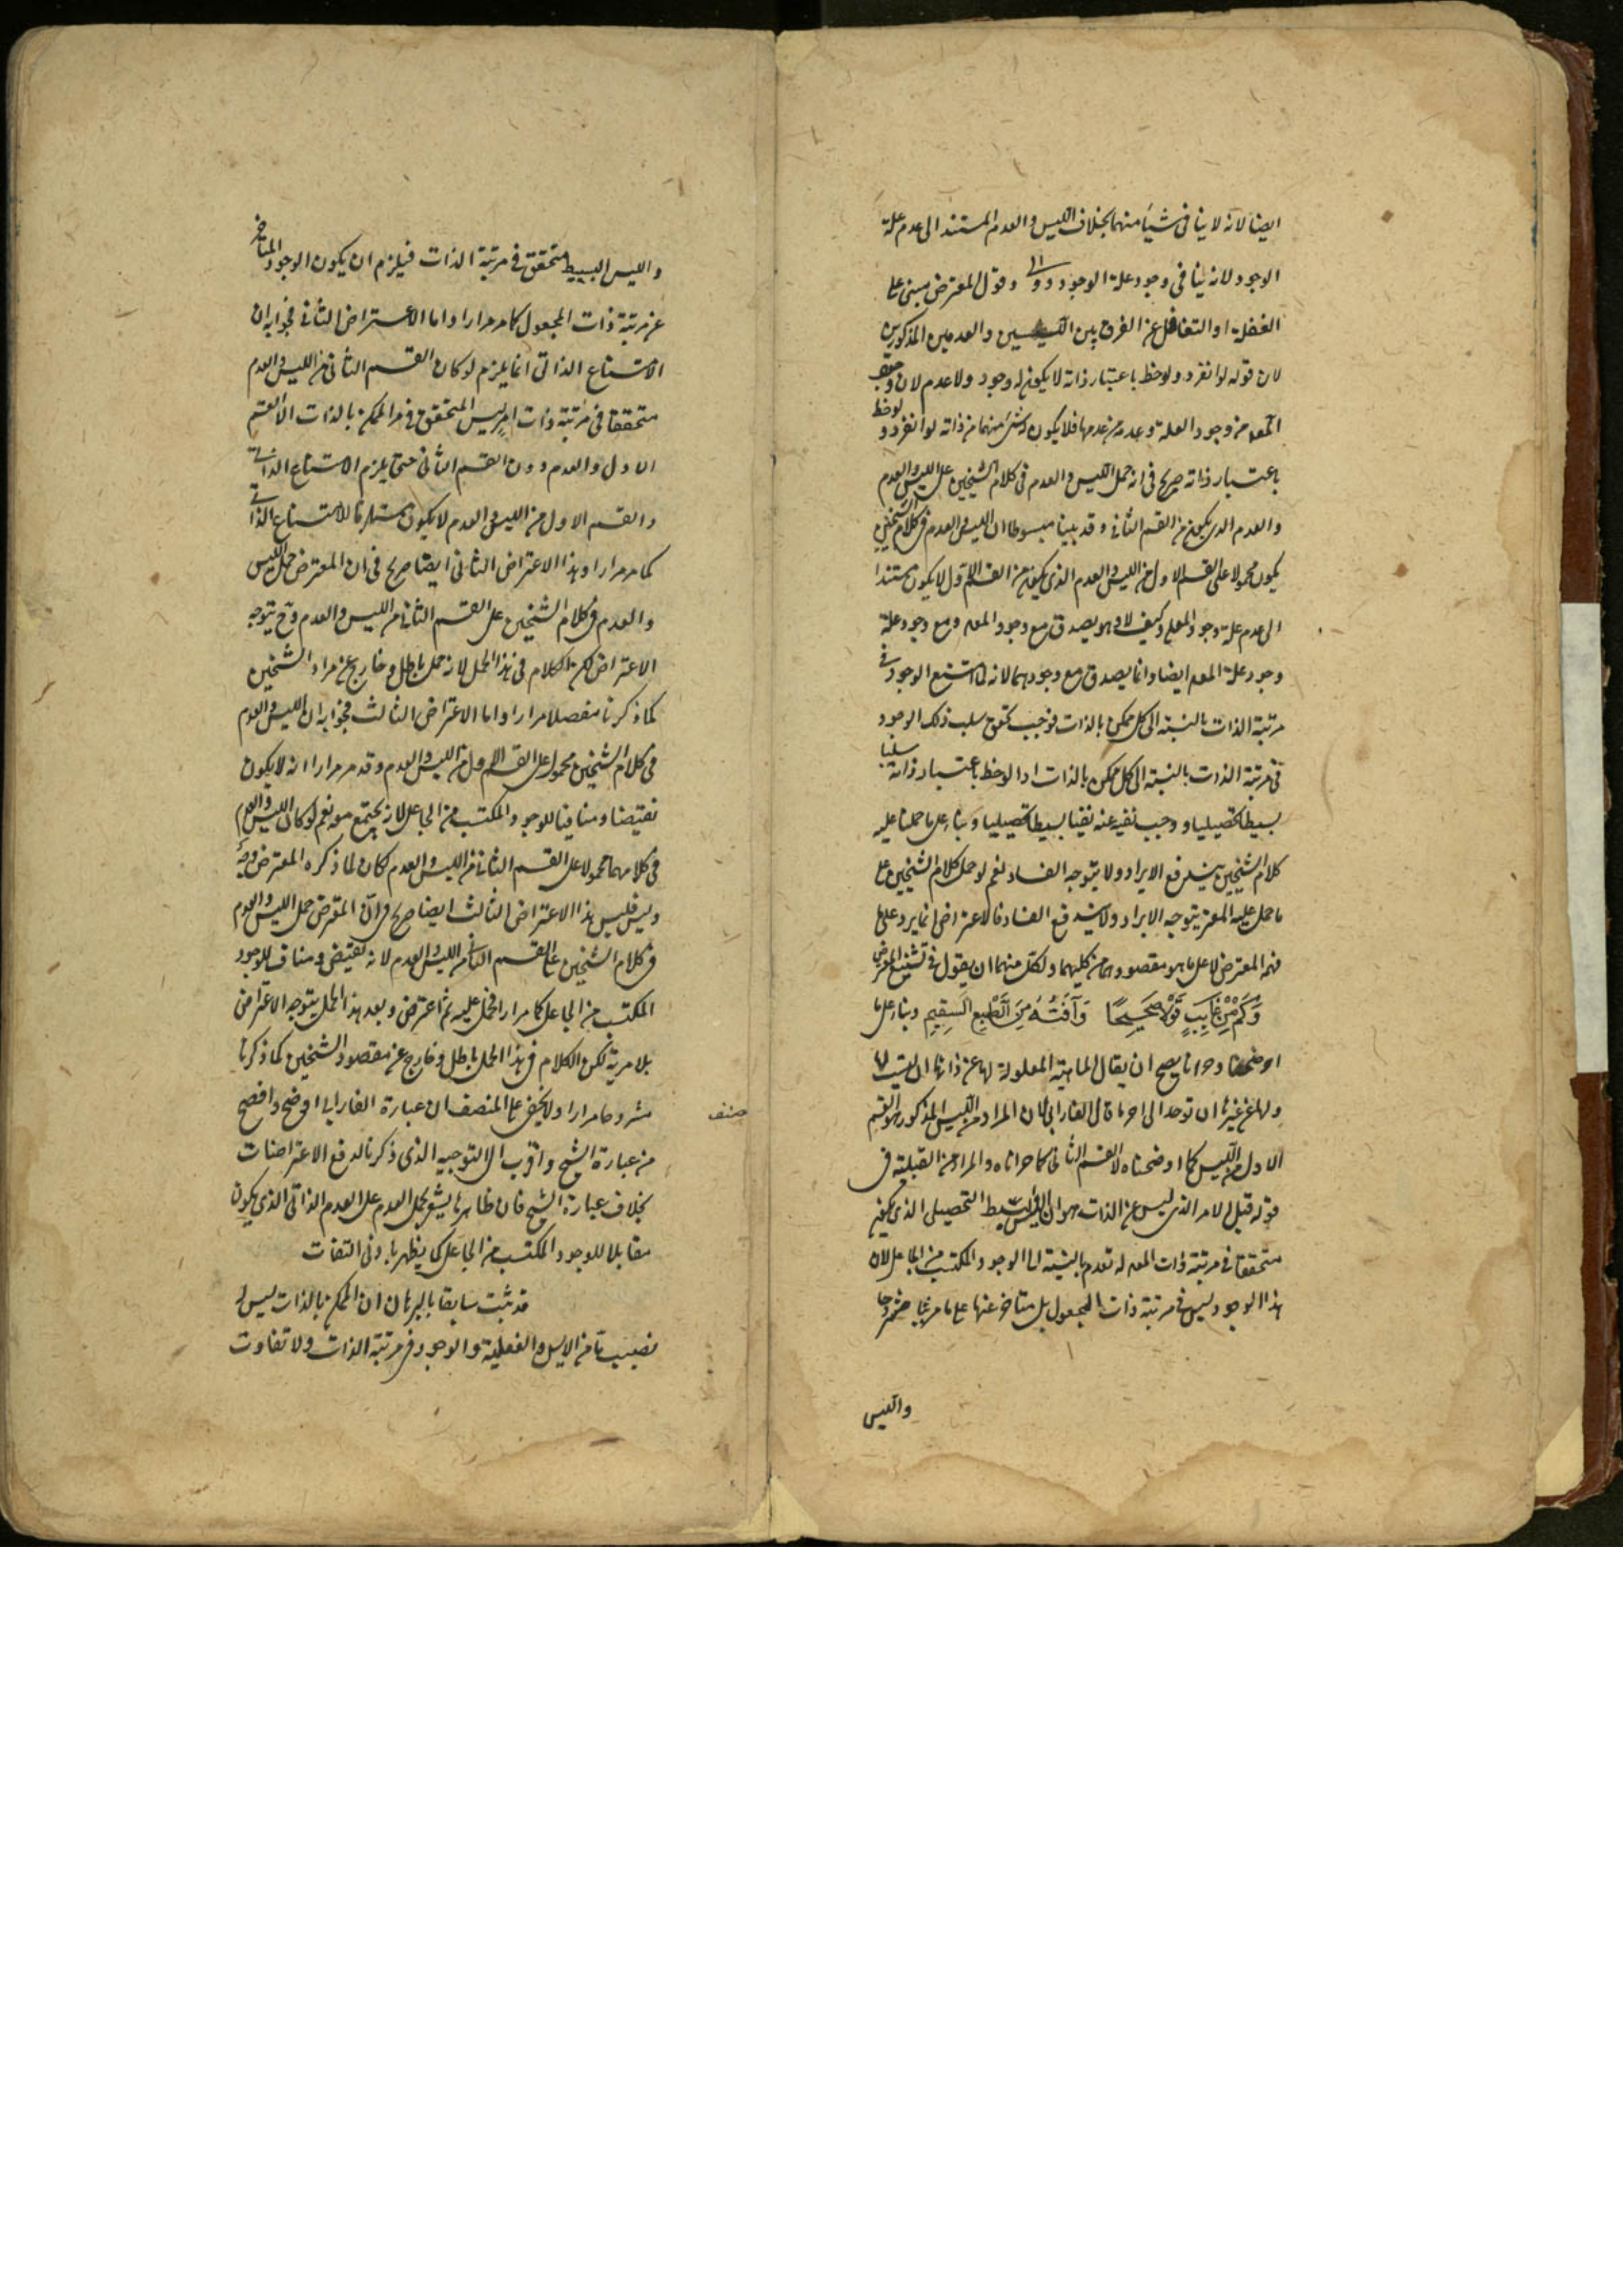 ايضا لانه لا ينافى شيئا منهما بخلاف الليس والعدم المستند الى عدم علة
الوجود لانه ينافى وجود علة الوجود وقول المعترض مبنى على
الغفلة او التغافل عن الفرق بين الليسين والعدمين المذكورين
لان قوله لو انفرد ولوحظ باعتبار ذاته لا يكون له وجود ولا عدم لان
من وجود العلة وعدمه من عدمها فلا يكون له شئ منهما من ذاته لو انفرد ولوحظ
باعتبار ذاته صريح فى انه حمل الليس والعدم فى كلام الشيخين على الليس والعدم
والعدم الذى يكون من القسم الثانى وقد بينا مبسوطا ان الليس والعدم فى كلام الشيخين
يكون محمولا على القسم الاول من الليس والعدم الذى يكون من القسم الاول لا يكون مستندا
الى عدم علة وجود المعلول وكيف لا وهو يصدق مع وجود المعلم ومع وجود علة
وجود علة المعلم ايضا وانما يصدق مع وجودهما لانه لما امتنع الوجود فى
مرتبة الذات بالنسبة الى كل ممكن بالذات فوجب تحقق سلب ذلك الوجود
فى مرتبة الذات بالنسبة الى كل ممكن بالذات اذا لوحظ باعتبار ذاته سلبا
بسيطا تحصيليا ووجب نفيه عنه نفيا بسيطا تحصيليا وبناء على ما حملنا عليه
كلام الشيخين يندفع الايراد ولا يتوجه الفساد نعم لو حمل كلام الشيخين على
ما حمل عليه المعترض يتوجه الايراد ولا يندفع الفساد فالاعتراض انما يرد على ما
فهمه المعترض لا على ما هو مقصودهما من كليهما ولكل منهما ان يقول فى تشنيع المعترض
وَكَمْ مِنْ عَايِبٍ قَوْلًا صَحِيحًا وَآفَتُهُ مِنَ الطَّبْعِ السَّقِيمِ وبناء على ما
اوضحنا وحررنا يصح ان يقال الماهية المعلولة لها عن ذاتها ان ليست لها
ولها عن غيرها ان توجد الى اخر ما قال الفارابى لان المراد من الليس المذكور هو القسم
الاول من الليس كما اوضحناه لا القسم الثانى كما حررناه والمراد من القبلية فى
قوله قبل الامر الذى ليس عن الذات هو ان الليس البسيط التحصيلى الذى يكون
متحققا فى مرتبة ذات المعلم له تقدم بالنسبة الى الوجود المكتسب من الجاعل لان
هذا الوجود ليس فى مرتبة ذات المجعول بل متاخر عنها على ما مر مشروحا
والليس
والليس البسيط متحقق فى مرتبة الذات فيلزم ان يكون الوجود المتاخر
عن مرتبة ذات المجعول كما مر مرارا واما الاعتراض الثانى فجوابه ان
الامتناع الذاتى انما يلزم لو كان القسم الثانى من الليس والعدم
متحققا فى مرتبة ذات المتحقق فى الممكن بالذات الا القسم
الاول والعدم دون القسم الثانى حتى يلزم الامتناع الذاتى
والقسم الاول من الليس والعدم لا يكون مستلزما للامتناع الذاتى
كما مر مرارا وهذا الاعتراض الثانى ايضا صريح فى ان المعترض حمل الليس
والعدم فى كلام الشيخين على القسم الثانى من الليس والعدم وح يتوجه
الاعتراض لكن الكلام فى هذا الحمل لانه حمل باطل وخارج عن مراد الشيخين
كما ذكرنا مفصلا مرارا واما الاعتراض الثالث فجوابه ان الليس والعدم
فى كلام الشيخين محمول على القسم الاول من الليس والعدم وقد مر مرارا انه لا يكون
نقيضا ومنافيا للوجود المكتسب من الجاعل لانه يجتمع معه نعم لو كان الليس والعدم
فى كلامهما محمولا على القسم الثانى من الليس والعدم لكان لما ذكره المعترض وجه
وليس فليس هذا الاعتراض الثالث ايضا صريح فى ان المعترض حمل الليس والعدم
فى كلام الشيخين على القسم الثانى من الليس والعدم لانه نقيض ومناف للوجود
المكتسب من الجاعل كما مر مرارا فحمل عليه ثم اعترض وبعد هذا الحمل يتوجه الاعتراض
بلا مرية لكن الكلام فى هذا الحمل باطل وخارج عن مقصود الشيخين كما ذكرنا
مشروحا مرارا ولا يخفى على المنصف ان عبارة الفارابى اوضح وافصح
من عبارة الشيخ واقرب الى التوجيه الذى ذكرنا لدفع الاعتراضات
بخلاف عبارة الشيخ فان ظاهرها يشعر بحمل العدم على العدم الذاتى الذى يكون
مقابلا للوجود المكتسب من الجاعل كما يظهر بادنى التفات
قد ثبت سابقا بالبرهان ان الممكن بالذات ليس له
نصيب ما من الايس والفعلية والوجود فى مرتبة الذات ولا تفاوت